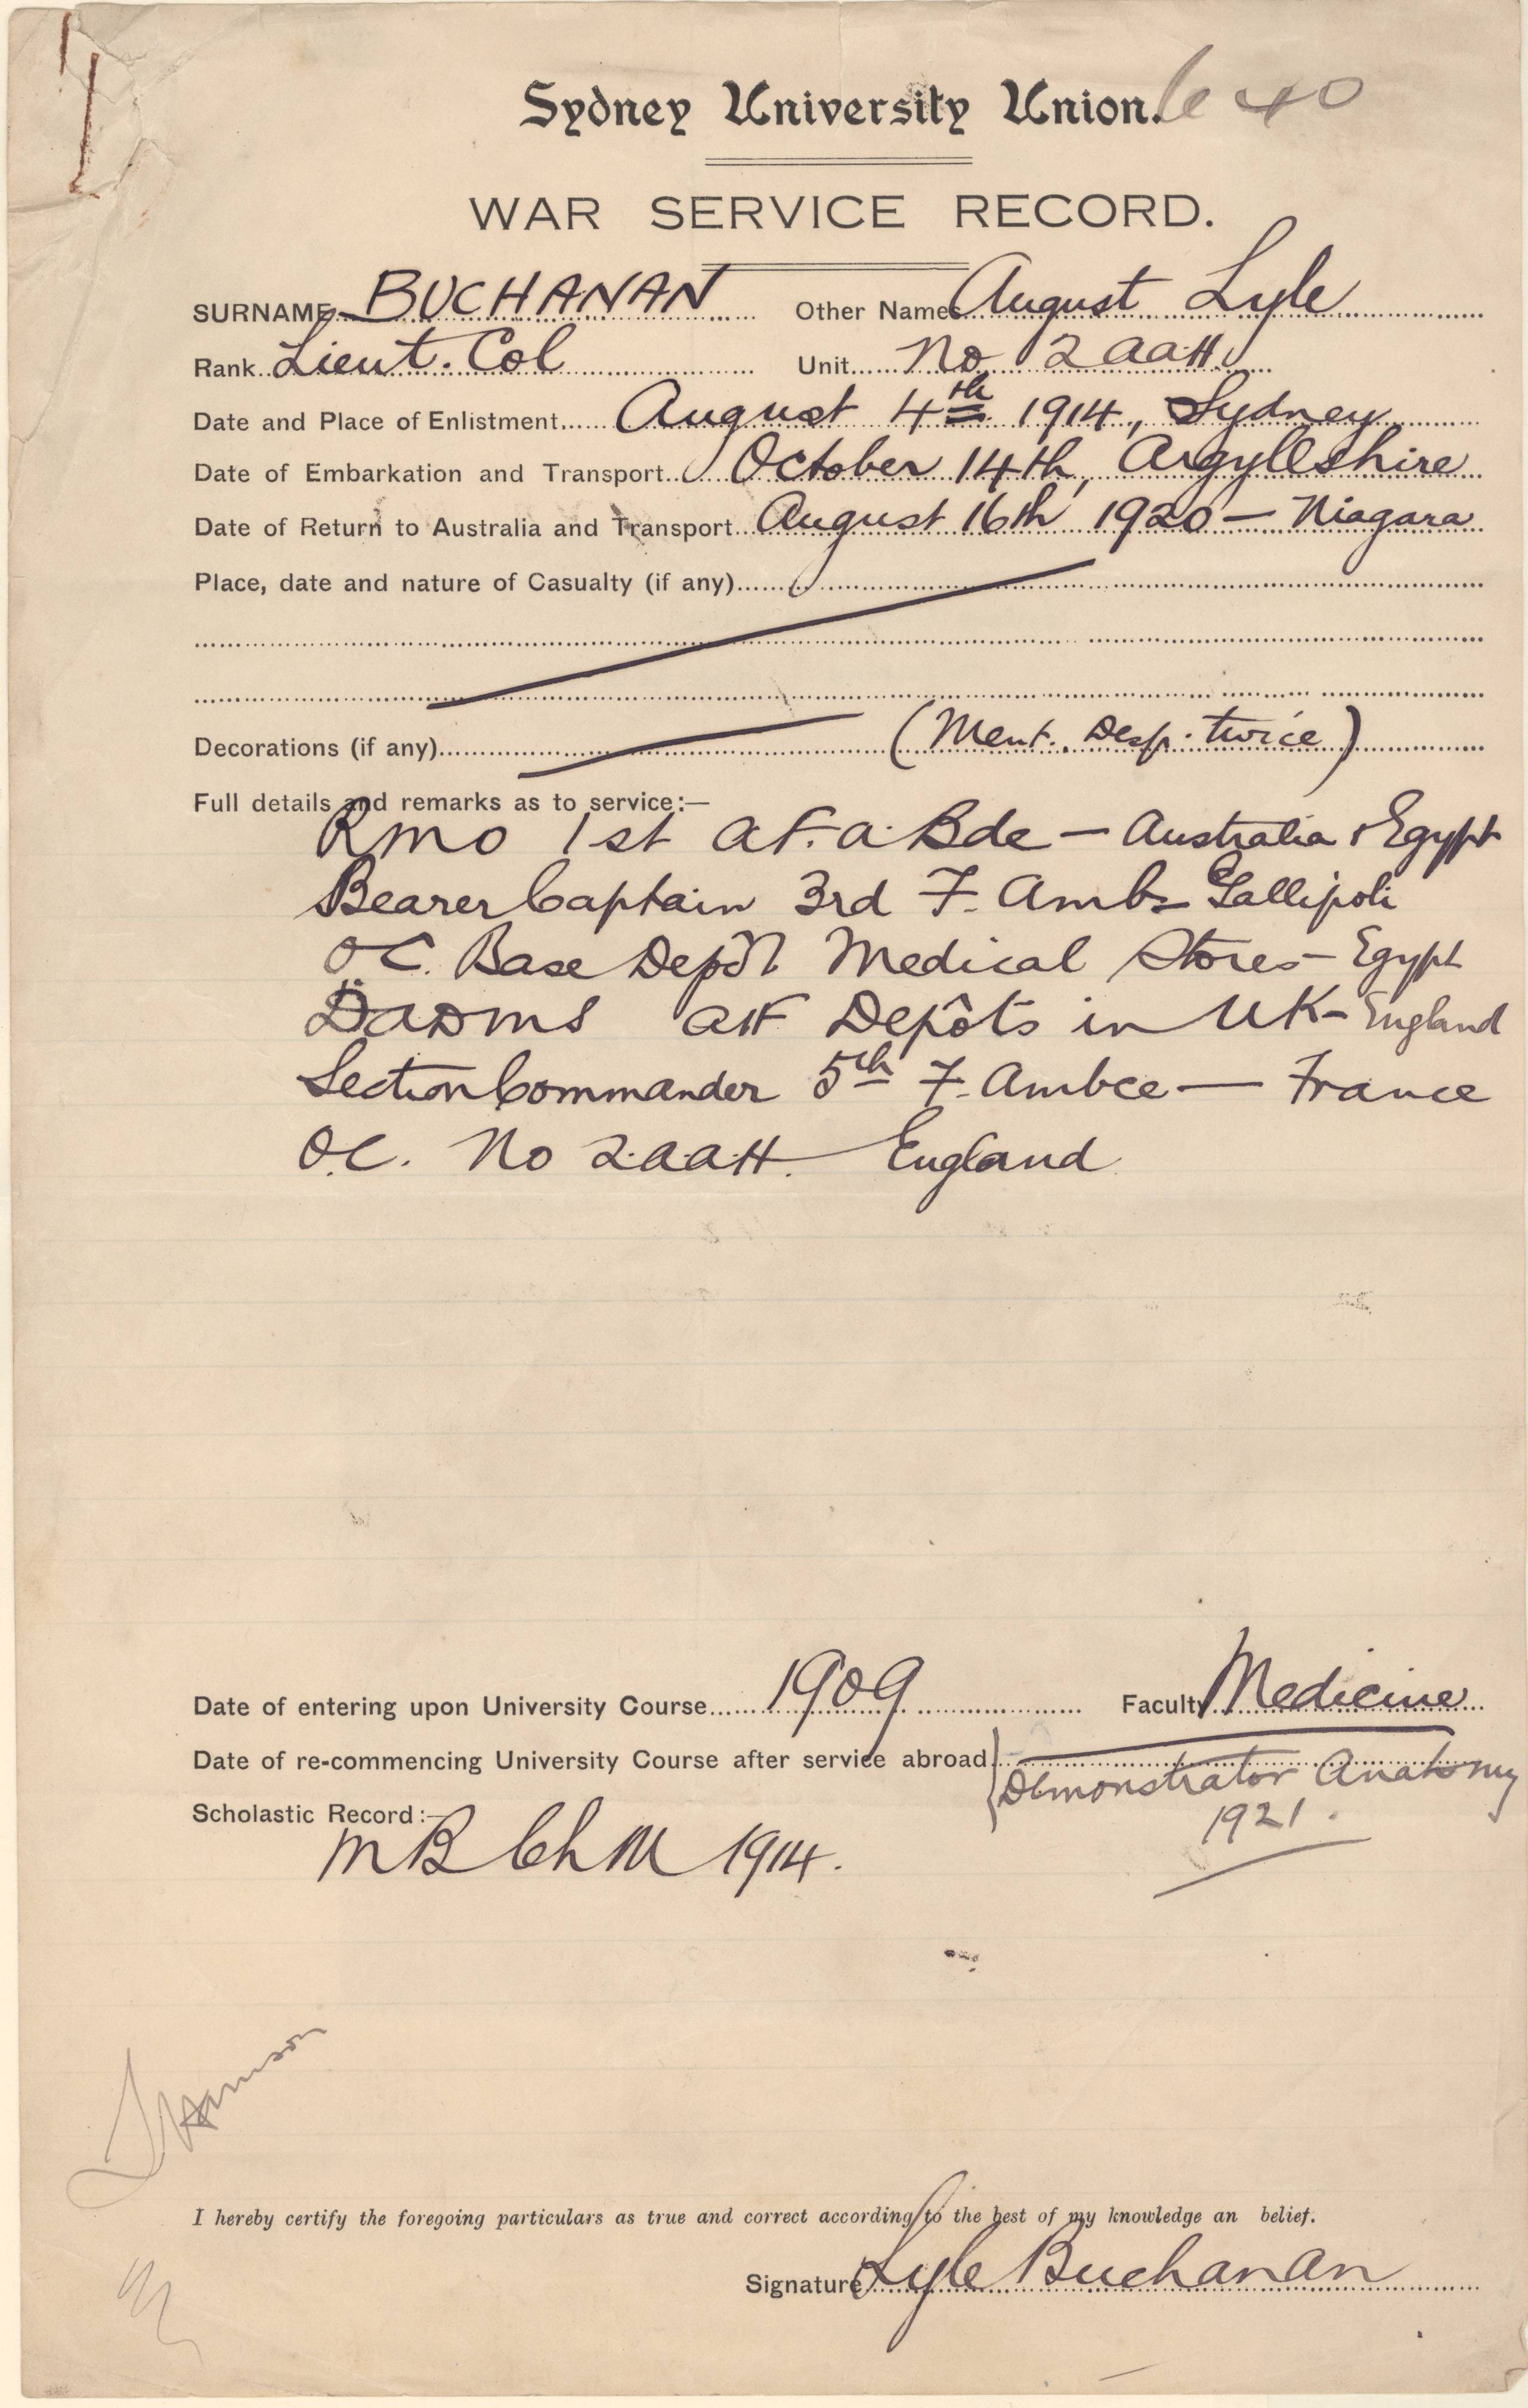 Sydney University Union. 40
WAR SERVICE RECORD.
SURNAME BUCHANAN Other Names August Lyle
Rank Lieut. Col Unit No 2 AAH.
Date and Place of Enlistment August 4th 1914, Sydney
Date of Embarkation and Transport October 14th, Argyllshire
Date of Return to Australia and Transport August 16th 1920 — Niagara
Place, date and nature of Casualty (if any)
Decorations (if any) (Ment. Desp. twice)
Full details and remarks as to service:—
RMO 1st A.F.A. Bde — Australia & Egypt
Bearer Captain 3rd F. Amb— Gallipoli
OC. Base Depôt Medical Stores — Egypt
DADMS AIF Depôts in UK — England
Section Commander 5th F. Ambce — France
O.C. No 2.A.A.H. — England
Date of entering upon University Course 1909 Faculty Medicine
Date of re-commencing University Course after service abroad
Demonstrator Anatomy
1921.
Scholastic Record:—
MB ChM 1914.
I hereby certify the foregoing particulars as true and correct according to the best of my knowledge an belief.
Signature Lyle Buchanan